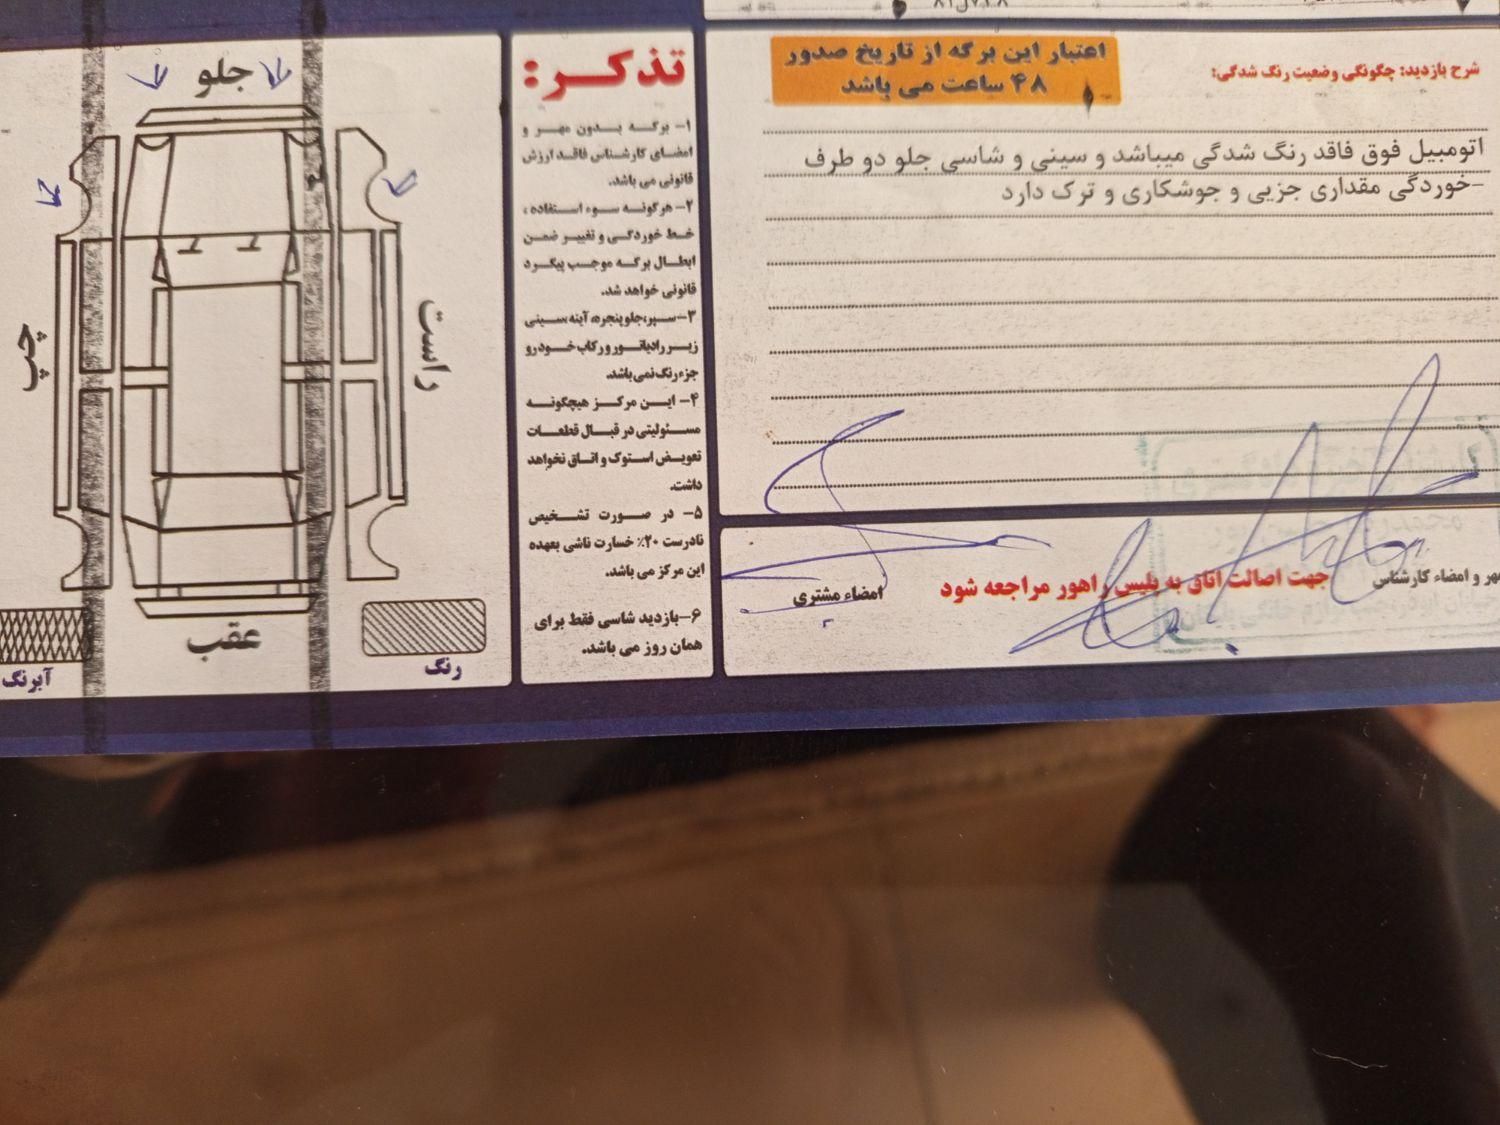 اعتبار این برگه از تاریخ صدور
۴۸ ساعت می باشد
شرح بازدید: چگونگی وضعیت رنگ شدگی:
اتومبیل فوق فاقد رنگ شدگی میباشد و سینی و شاسی جلو دو طرف
-خوردگی مقداری جزیی و جوشکاری و ترک دارد
مهر و امضاء کارشناس
جهت اصالت اتاق به پلیس راهور مراجعه شود
امضاء مشتری
تذکر:
۱- برگه بدون مهر و
امضای کارشناس فاقد ارزش
قانونی می باشد.
۲- هرگونه سوء استفاده ،
خط خوردگی و تغییر ضمن
ابطال برگه موجب پیگرد
قانونی خواهد شد.
۳-سپر،جلوپنجره، آینه،سینی
زیر رادیاتور و رکاب خودرو
جزء رنگ نمی باشد.
۴- این مرکز هیچگونه
مسئولیتی در قبال قطعات
تعویض استوک و اتاق نخواهد
داشت.
۵- در صورت تشخیص
نادرست ۲۰٪ خسارت ناشی بعهده
این مرکز می باشد.
۶-بازدید شاسی فقط برای
همان روز می باشد.
جلو
راست
چپ
عقب
رنگ
آبرنگ